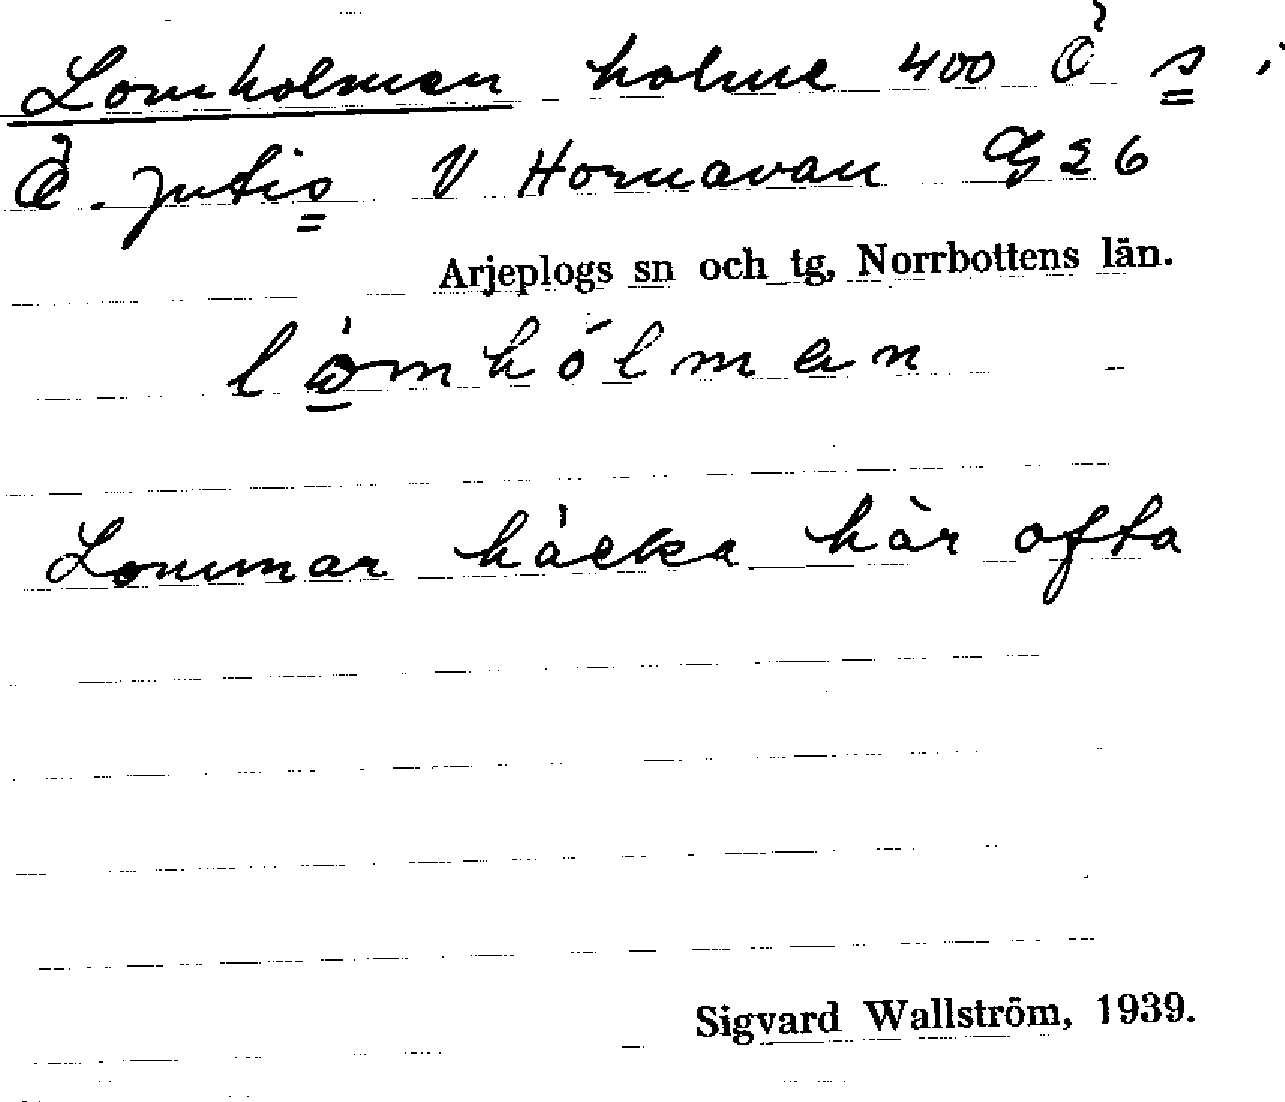 Lomholmen holme 400 Ö s i
Ö. Jutis V Hornavan G26
Arjeplogs sn och tg, Norrbottens län.
lòmhólman
Lommar häcka här ofta
Sigvard Wallström, 1939.